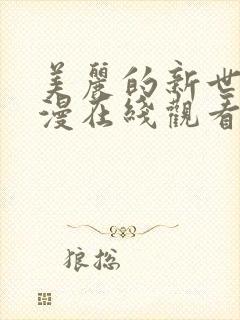 美麗的新世
漫在綫觀看
狼总